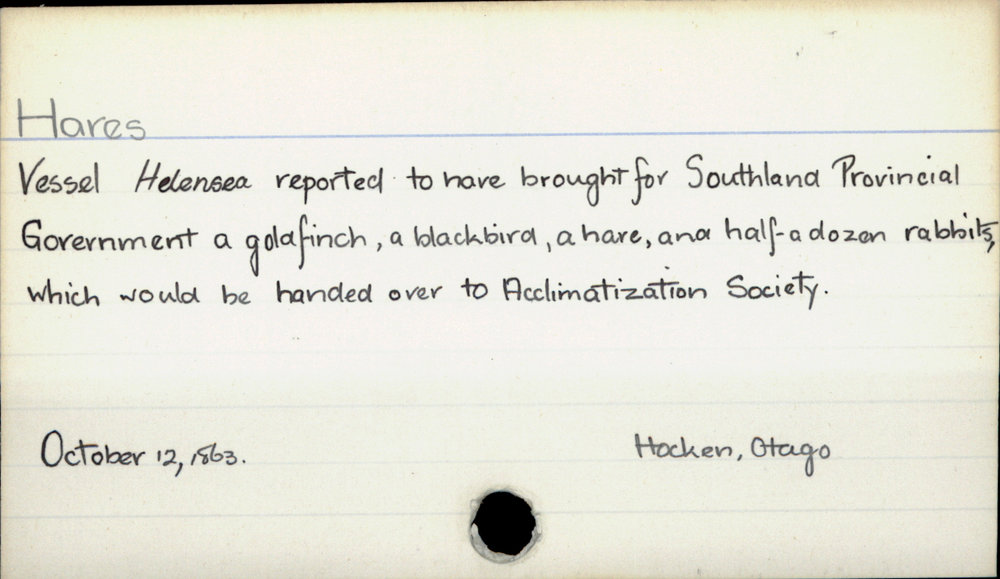 Hares
Vessel Helensea reported to have brought for Southland Provincial
Government a goldfinch, a blackbird, a hare, and half-a dozen rabbits,
which would be handed over to Acclimatization Society.
October 12, 1863.
Hocken, Otago